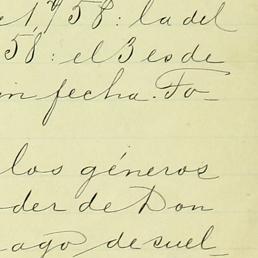 el 1º 58: la del
58: el 3 es de
in fecha. Fo-
los géneros
der de Don
ago de suel-